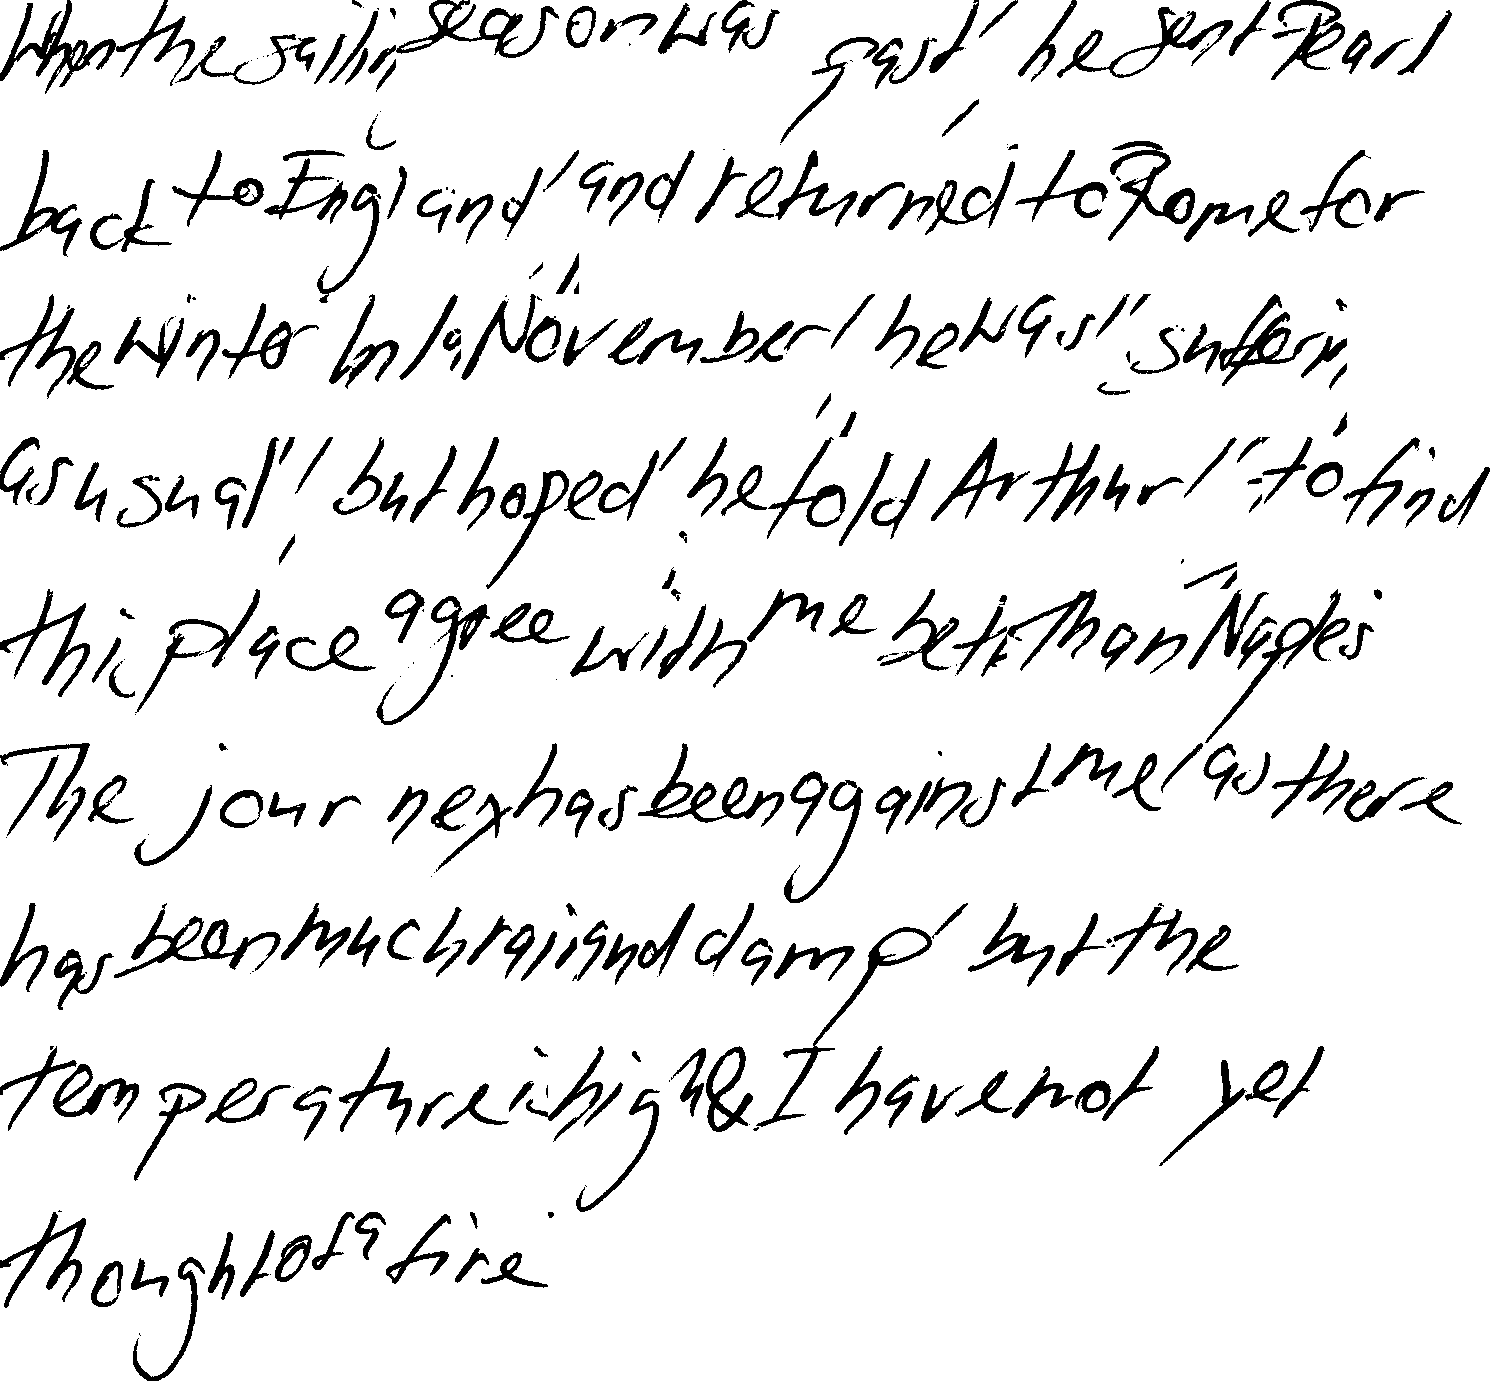 When the sailing season was past, he sent Pearl
back to England, and returned to Rome for
the winter. In November, he was "suffering
as usual", but hoped, he told Arthur, "to find
this place agree with me better than Naples.
The journey has been against me, as there
has been much rain and damp, but the
temperature is high & I have not yet
thought of a fire.